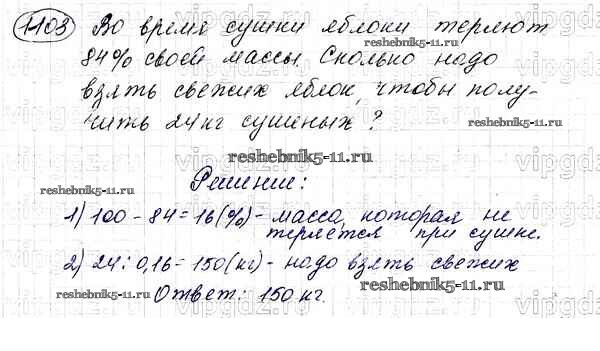 1103 Во время сушки яблоки теряют
84% своей массы. Сколько надо
взять свежих яблок, чтобы полу-
чить 24 кг сушеных?
Решение:
1) 100 - 84 = 16 (%) - масса, которая не
теряется при сушке.
2) 24 : 0,16 = 150 (кг) - надо взять свежих
Ответ: 150 кг.
reshebnik5-11.ru
reshebnik5-11.ru
reshebnik5-11.ru
reshebnik5-11.ru
reshebnik5-11.ru
reshebnik5-11.ru
vipgdz